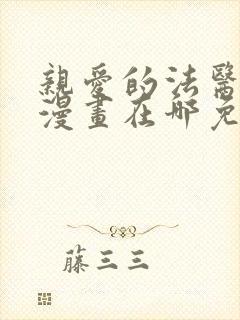 親愛的法醫
漫畫在哪免
藤三三